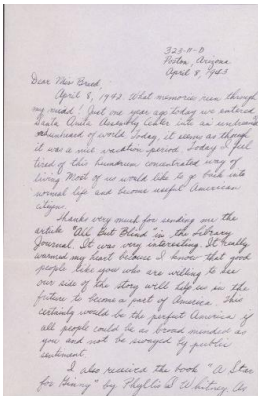 323-11-D
Poston, Arizona
April 8, 1943
Dear Miss Breed,
April 8, 1942. What memories run through
my mind! Just one year ago today we entered
Santa Anita Assembly Center into an
unheard of world. Today, it seems as though
it was a nice vacation period. Today I feel
tired of this humdrum concentrated way of
living. Most of us would like to go back into
normal life and become useful American
citizens.
Thanks very much for sending me the
article "All But Blind" in the Library
Journal. It was very interesting. It really
warmed my heart because I know that good
people like you who are willing to see
our side of the story will help us in the
future to become a part of America. This
certainly would be the perfect America if
all people could be as broad minded as
you and not be swayed by public
sentiment.
I also received the book "A Star
for Ginny" by Phyllis S. Whitney. As